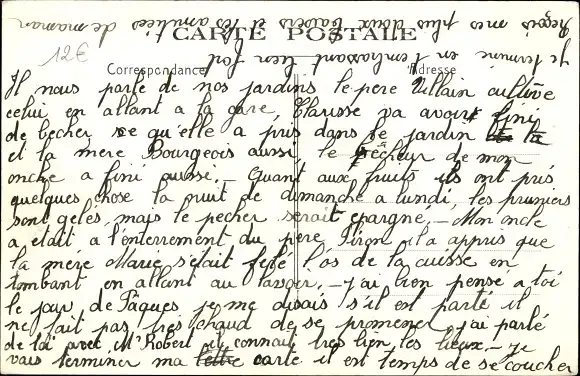 CARTE POSTALE
12€
Correspondance
Adresse
Il nous parle de nos jardins le pere Villain cultive
celui en allant a la gare, Clarisse va avoir fini
de becher ce qu'elle a pris dans le jardin
et la mere Bourgeois aussi, le pêcheur de mon
oncle a fini aussi. _ Quant aux fruits ils ont pris
quelques chose la nuit de dimanche a lundi, les pruniers
sont gelés, mais le pecher serait epargne. _ Mon oncle
a etait a l'enterrement du pere Piron il a appris que
la mére Marie s'était félé l'os de la cuisse en
tombant en allant au lavoir. _ j'ai bien pensé a toi
le jour de Pâques je me disais s'il est parté il
ne fait pas tres chaud de se promener, j'ai parlé
de toi avec Mr Robert il connait tres bien les lieux. _ je
vais terminer ma lettre carte il est temps de se coucher
je termine en t'embrassant bien fort
Reçois mes plus doux baisers et les amitiées de maman